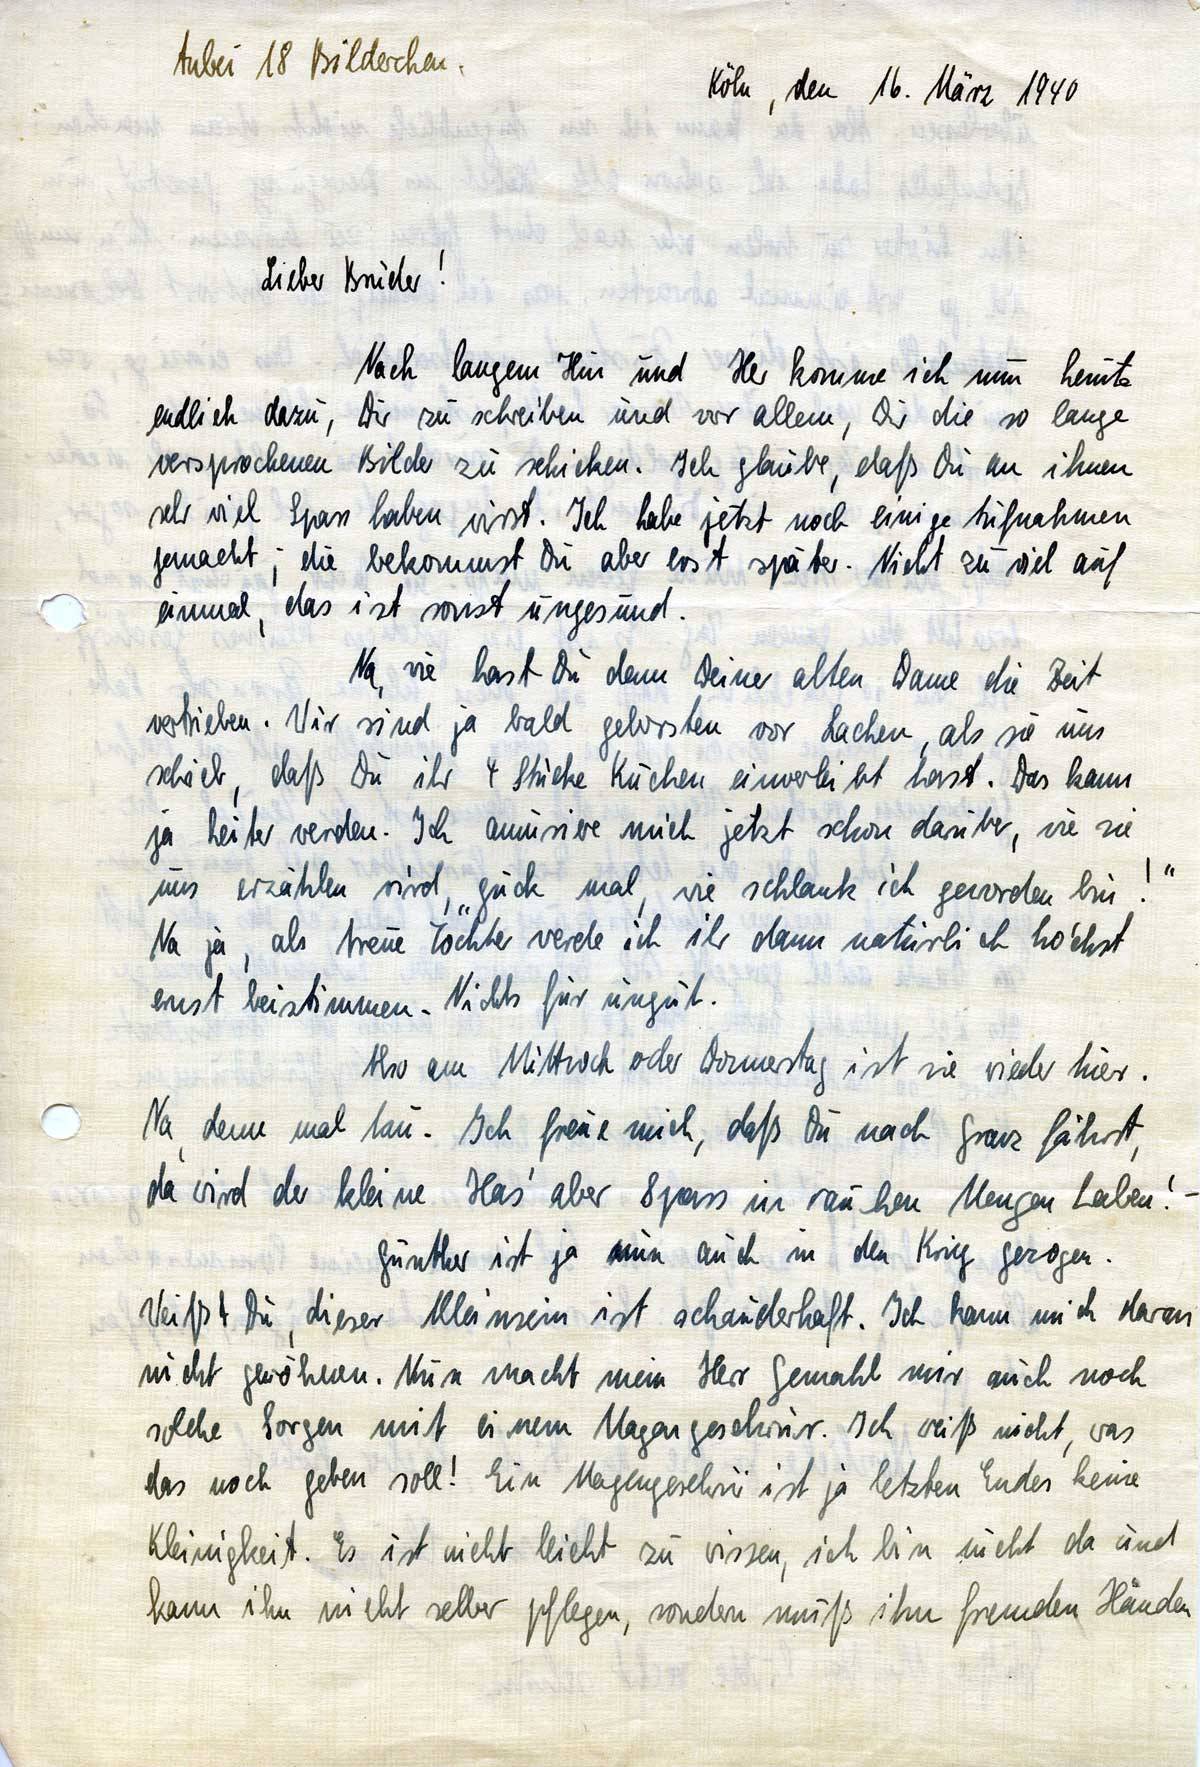 Anbei 18 Bilderchen.
Köln, den 16. März 1940
Lieber Bruder!
Nach langem Hin und Her komme ich nun heute
endlich dazu, Dir zu schreiben und vor allem, Dir die so lange
versprochenen Bilder zu schicken. Ich glaube, daß Du an ihnen
sehr viel Spass haben wirst. Ich habe jetzt noch einige Aufnahmen
gemacht; die bekommst Du aber erst später. Nicht zu viel auf
einmal, das ist sonst ungesund.
Na, wie hast Du denn Deiner alten Dame die Zeit
vertrieben. Wir sind ja bald geborsten vor Lachen, als sie uns
schrieb, daß Du ihr 4 Stücke Kuchen einverleibt hast. Das kann
ja heiter werden. Ich amüsiere mich jetzt schon darüber, wie sie
uns erzählen wird, „guck mal, wie schlank ich geworden bin!"
Na ja, als treue Tochter werde ich ihr dann natürlich höchst
ernst beistimmen. Nichts für ungut.
Also am Mittwoch oder Donnerstag ist sie wieder hier.
Na, denn mal tau. Ich freue mich, daß Du nach Graz fährst,
da wird der kleine Has' aber Spass in rauhen Mengen haben! –
Günther ist ja nun auch in den Krieg gezogen.
Weißt Du, dieser Alleinsein ist schauderhaft. Ich kann mich daran
nicht gewöhnen. Nun macht mein Herr Gemahl mir auch noch
solche Sorgen mit einem Magengeschwür. Ich weiß nicht, was
das noch geben soll! Ein Magengeschwür ist ja letzten Endes keine
Kleinigkeit. Es ist nicht leicht zu wissen, ich bin nicht da und
kann ihn nicht selber pflegen, sondern muß ihn fremden Händen